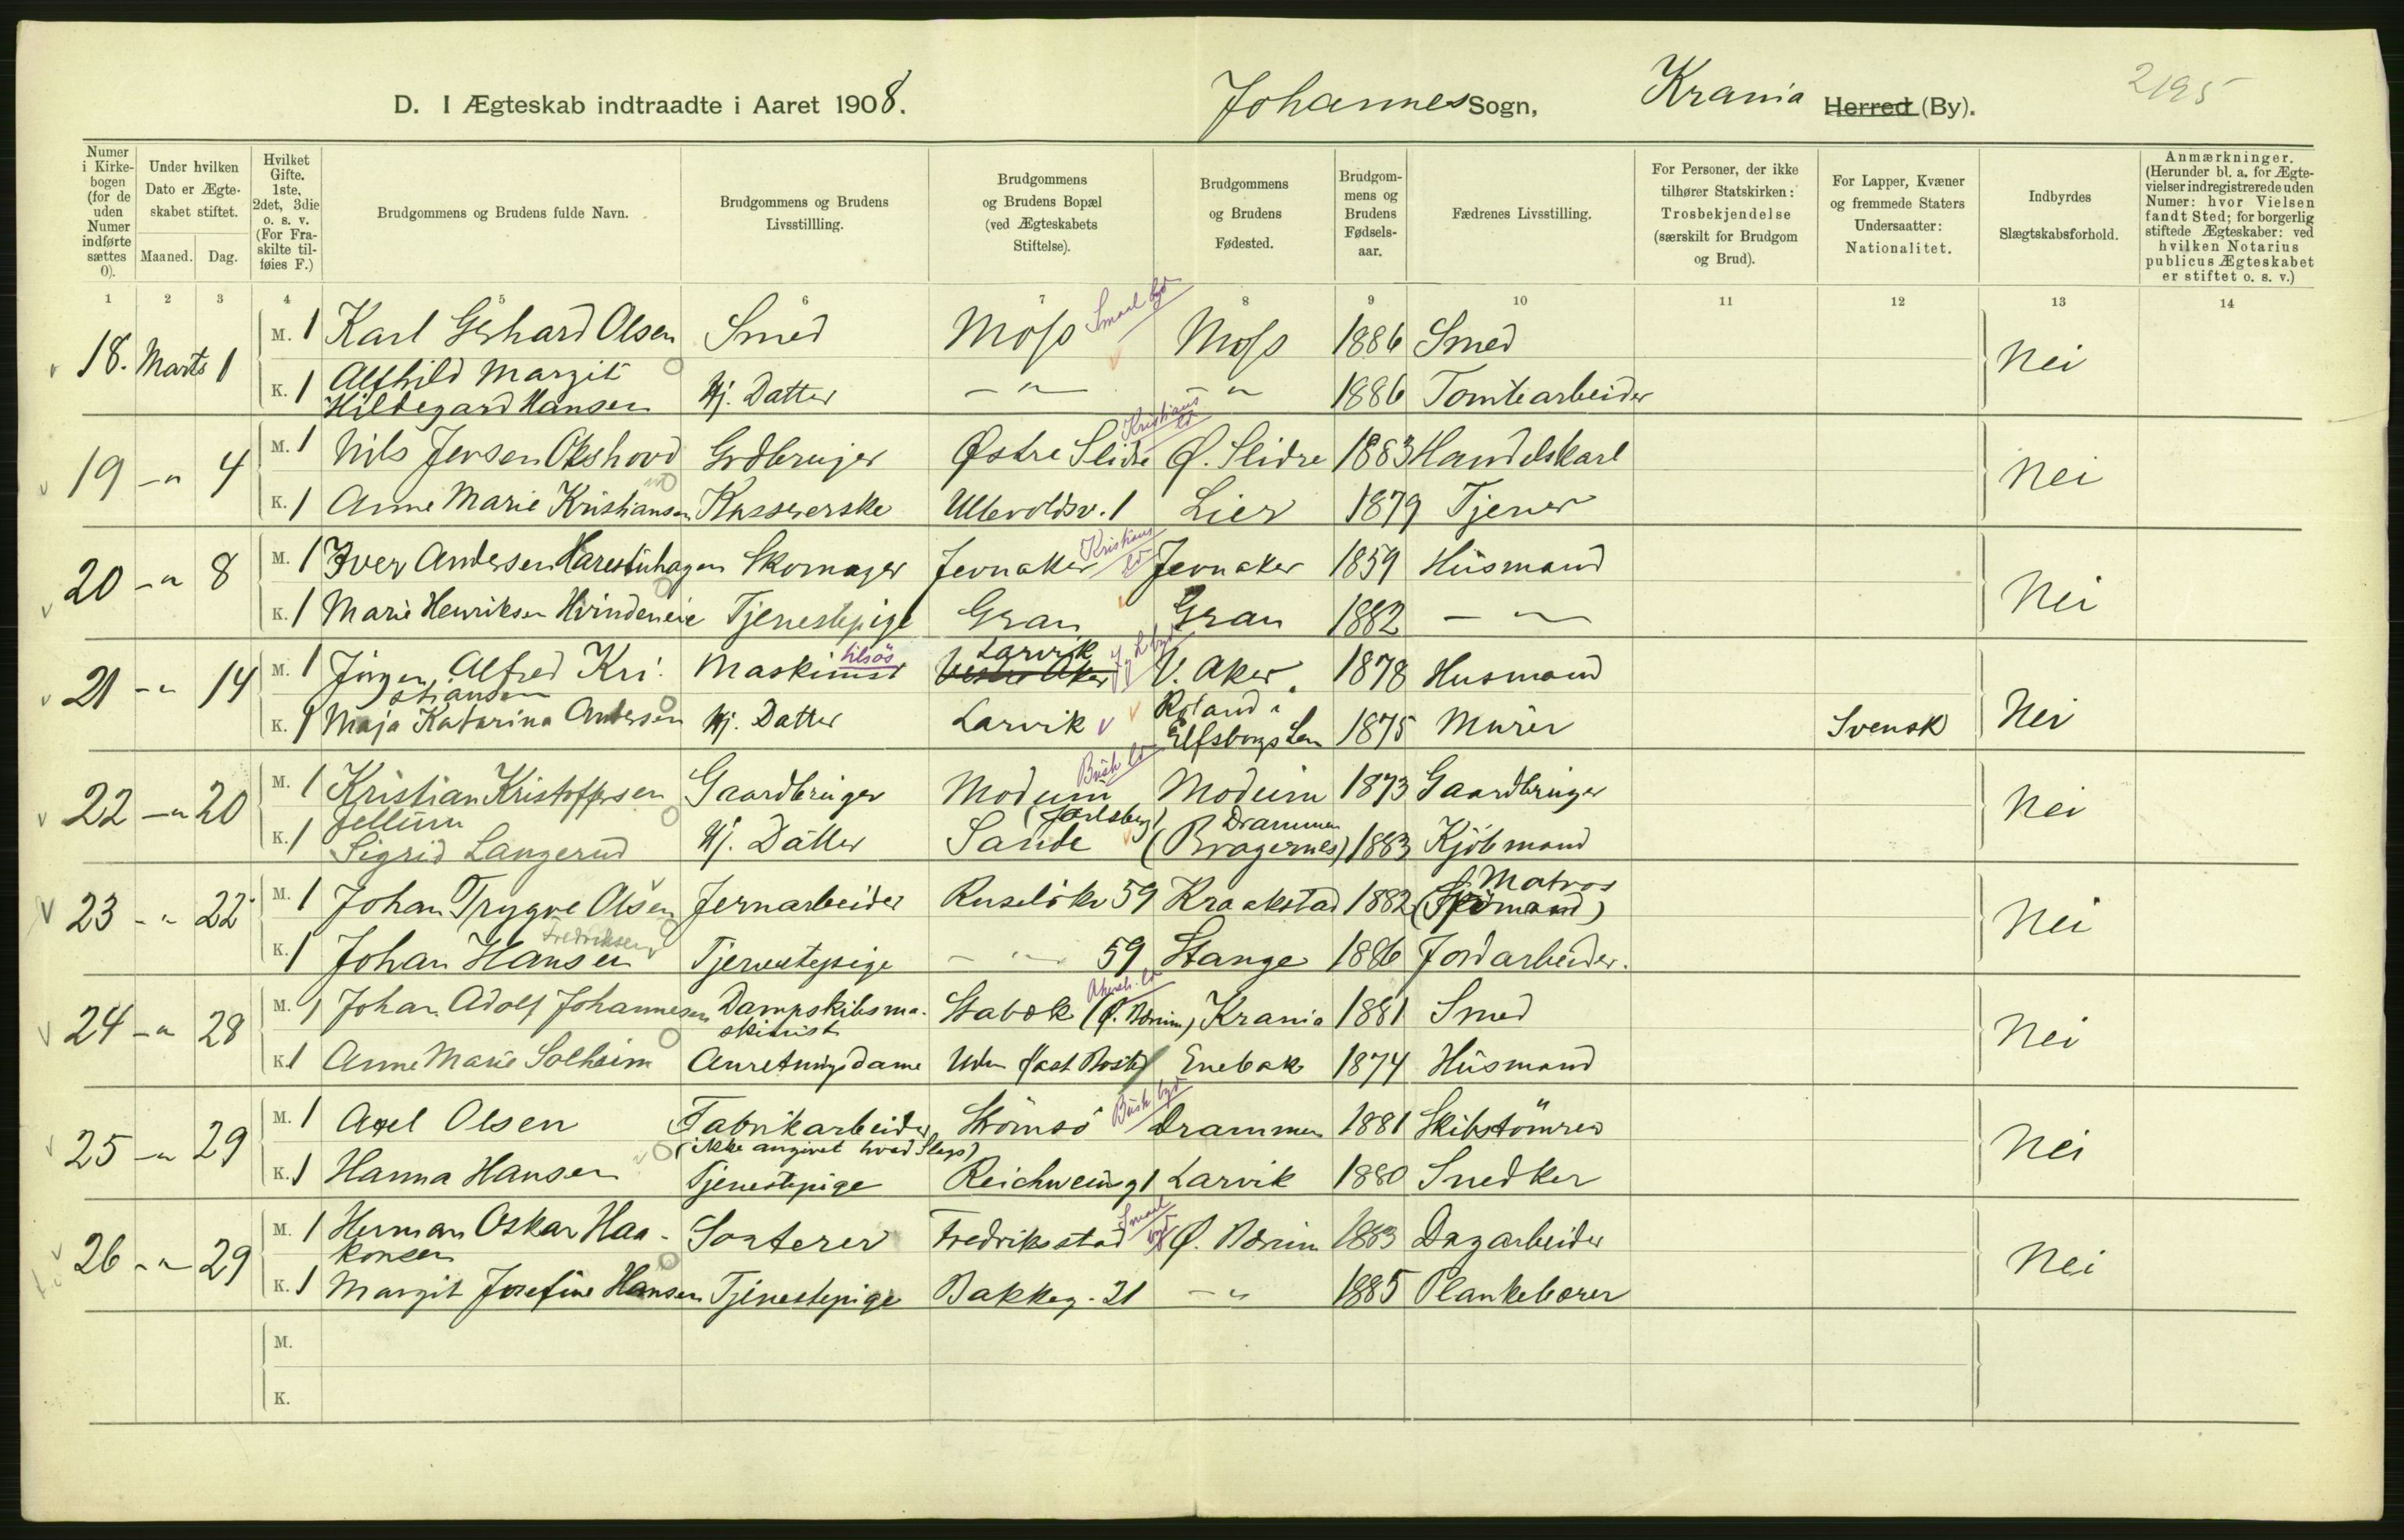 D. I Ægteskab indtraadte i Aaret 1908. Johannes Sogn, Krania Herred (By). 2195
Numer i Kirkebogen (for de uden Numer indførte sættes 0).
Under hvilken Dato er Ægteskabet stiftet.
Maaned. Dag.
Hvilket Gifte. 1ste, 2det, 3die o. s. v. (For Fraskilte tilføies F.)
Brudgommens og Brudens fulde Navn.
Brudgommens og Brudens Livsstillling.
Brudgommens og Brudens Bopæl (ved Ægteskabets Stiftelse).
Brudgommens og Brudens Fødested.
Brudgommens og Brudens Fødselsaar.
Fædrenes Livsstilling.
For Personer, der ikke tilhører Statskirken: Trosbekjendelse (særskilt for Brudgom og Brud).
For Lapper, Kvæner og fremmede Staters Undersaatter: Nationalitet.
Indbyrdes Slægtskabsforhold.
Anmærkninger. (Herunder bl. a. for Ægtevielser indregistrerede uden Numer: hvor Vielsen fandt Sted; for borgerlig stiftede Ægteskaber: ved hvilken Notarius publicus Ægteskabet er stiftet o. s. v.)
1 2 3 4 5 6 7 8 9 10 11 12 13 14
18. Marts 1 M. 1 Karl Gerhard Olsen Smed Moss Smaal byd Moss 1886 Smed Nei
K. 1 Alfhild Margit Hj. Datter — " — — " 1886 Tomtearbeider
Hildegard Hansen
19 — " 4 M. 1 Nils Jensen Okshovd Grdbruger Østre Slidre Kristians ld Ø. Slidre 1883 Handelskarl Nei
K. 1 Anne Marie Kristiansen Kassererske Ullevoldsv. 1 Lier 1879 Tjener
20 — " 8 M. 1 Iver Andersen Harestuhagen Skomager Jevnaker Kristians ld Jevnaker 1859 Husmand Nei
K. 1 Marie Henriksen Hvindeneie Tjenestepige Gran Gran 1882 — " —
21 — " 14 M. 1 Jürgen Alfred Kri- Maskinist tilsøs Vestre Aker Larvik V. Aker. 1878 Husmand Nei
stiansen
K. 1 Maja Katarina Andersen Hj. Datter Larvik Roland i Elfsborgs Len 1875 Murer Svensk
22 — " 20 M. 1 Kristian Kristoffersen Gaardbruger Modum Busk ld Modum 1873 Gaardbruger Nei
Jellum
K. 1 Sigrid Langerud Hj. Datter Sande (Jarlsberg) Drammen (Bragernes) 1883 Kjøbmand
23 — " 22 M. 1 Johan Trygve Olsen Jernarbeider Ruseløkv 59 Kraakstad 1882 Matros (Sjømand) Nei
K. 1 Johan Hansen Fredriksen Tjenestepige — " — 59 Stange 1886 Jordarbeider.
24 — " 28 M. 1 Johan Adolf Johannesen Dampskibsma- Stabæk (Ø. Bærum) Akersh. ld Krania 1881 Smed Nei
skinist
K. 1 Anne Marie Solheim Anretningsdame Uden fast Bosted Enebak 1874 Husmand
25 — " 29 M. 1 Axel Olsen Fabrikarbeider Strømsø Busk byd Drammen 1881 Skibstømrer Nei
(ikke angivet hvad Slags)
K. 1 Hanna Hansen Tjenestepige Reichweinsg 1 Larvik 1880 Snedker
26 — " 29 M. 1 Herman Oskar Haa- Sorterer Fredriksstad Smaal byd Ø. Bærum 1883 Dagarbeider Nei
konsen
K. 1 Margit Josefine Hansen Tjenestepige Bakkeg. 21 — " 1885 Plankebærer
M.
K.